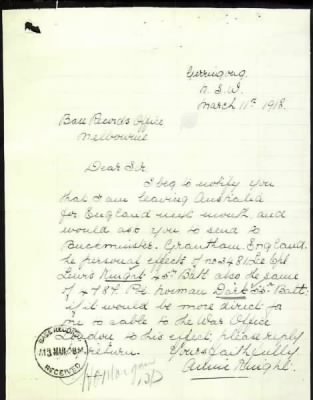 Gerringong
N.S.W.
March 11th 1918.
Base Records Office
Melbourne
Dear Sir
I beg to notify you
that I am leaving Australia
for England next month and
would ask you to send to
Buckminster. Grantham England.
he personal effects of no 3481 Lc Cpl
Lewis Knight 45th Batt also the same
of 4784 Pte Norman Batt.
if it would be more direct for
me to cable to the War Office
London to this effect, please reply
return. Yours faithfully
Knight.
BASE RECORDS
13 MAR
RECEIVED